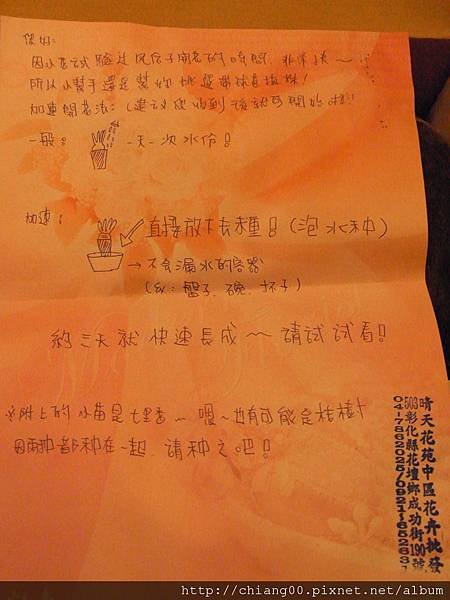 您好:
因小花試驗过风信子開花的時間,非常快~
所以小幫手還是幫你挑選球有根株!
加速開花法:(建议您收到後就可開始啦!!
一般:
一天一次水份!
加速:
直接放下去種!(泡水种)
→不会漏水的容器
(如:盤子、碗、杯子)
約三天就快速長成~請試試看!
※附上的小苗是七里香~喔~也有可能是桔樹
因兩种都种在一起,請种之吧!
晴天花苑中區花卉批發
503彰化縣花壇鄉成功街190號
04-7862025/0921-652637
http://chiang00.pixnet.net/album